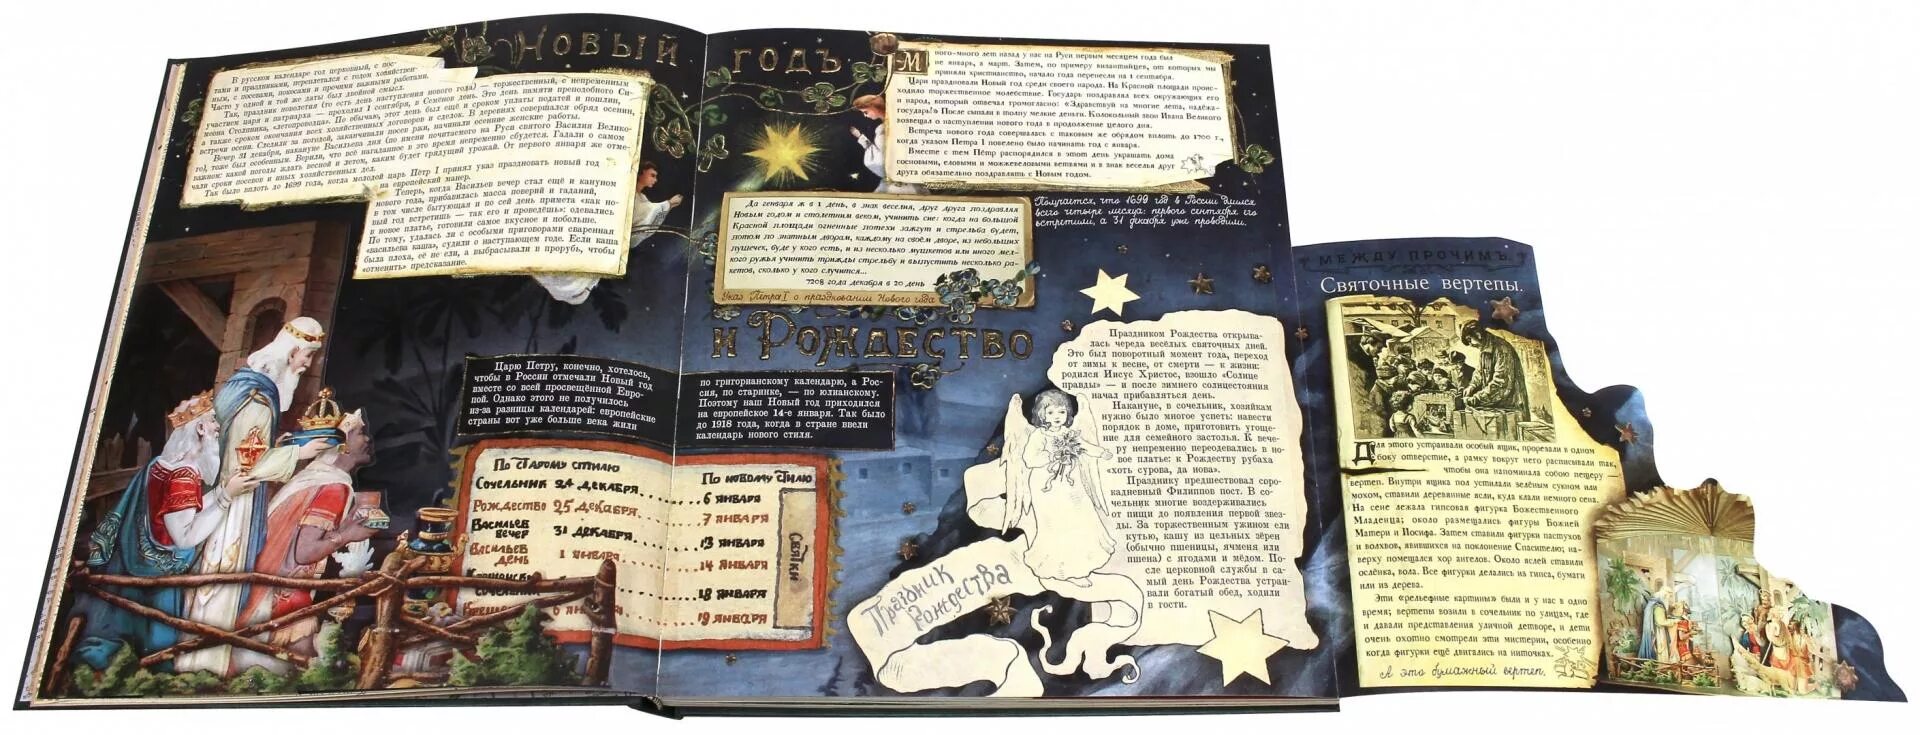 Новый годъ
В русском календаре год церковный, с пос-
тами и праздниками, переплетался с годом хозяйствен-
ным, с посевами, покосами и прочими важными работами.
Часто у одной и той же даты был двойной смысл.
Так, праздник новолетия (то есть день наступления нового года) — торжественный, с непременным
участием царя и патриарха — проходил 1 сентября, в Семёнов день. Это день памяти преподобного Си-
меона Столпника, «летопроводца». По обычаю, этот день был ещё и сроком уплаты податей и пошлин,
а также сроком окончания всех хозяйственных договоров и сделок. В деревнях совершался обряд осенин,
встречи осени. Следили за погодой, заканчивали посев ржи, начинали осенние женские работы.
Вечер 31 декабря, накануне Васильева дня (по имени почитаемого на Руси святого Василия Велико-
го), тоже был особенным. Верили, что всё нагаданное в это время непременно сбудется. Гадали о самом
важном: какой погоды ждать весной и летом, каким будет грядущий урожай. От первого января же отме-
чали сроки посевов и иных хозяйственных дел.
Так было вплоть до 1699 года, когда молодой царь Пётр I принял указ праздновать новый год
на европейский манер.
Теперь, когда Васильев вечер стал ещё и кануном
нового года, прибавилась масса поверий и гаданий,
в том числе бытующая и по сей день примета «как но-
вый год встретишь — так его и проведёшь»: одевались
в новое платье, готовили самое вкусное и побольше.
По тому, удалась ли с особыми приговорами сваренная
«васильева каша», судили о наступающем годе. Если каша
была плоха, её не ели, а выбрасывали в прорубь, чтобы
«отменить» предсказание.
Много-много лет назад у нас на Руси первым месяцем года был
не январь, а март. Затем, по примеру византийцев, от которых мы
приняли христианство, начало года перенесли на 1 сентября.
Цари праздновали Новый год среди своего народа. На Красной площади проис-
ходило торжественное молебствие. Государь поздравлял всех окружающих его
и народ, который отвечал громогласно: «Здравствуй на многие лета, надёжа-
государь!» После сыпали в толпу мелкие деньги. Колокольный звон Ивана Великого
возвещал о наступлении нового года в продолжение целого дня.
Встреча нового года совершалась с таковым же обрядом вплоть до 1700 г.,
когда указом Петра I повелено было начинать год с января.
Вместе с тем Пётр распорядился в этот день украшать дома
сосновыми, еловыми и можжевеловыми ветвями и в знак веселья друг
друга обязательно поздравлять с Новым годом.
Да генваря ж в 1 день, в знак веселия, друг друга поздравляя
Новым годом и столетним веком, учинить сие: когда на большой
Красной площади огненные потехи зажгут и стрельба будет,
потом по знатным дворам, каждому на своём дворе, из небольших
пушечек, буде у кого есть, и из несколько мушкетов или иного мел-
кого ружья учинить трижды стрельбу и выпустить несколько ра-
кетов, сколько у кого случится...
7208 года декабря в 20 день
Указ Петра I о праздновании Нового года
Получается, что 1699 год в России длился
всего четыре месяца: первого сентября его
встретили, а 31 декабря уже проводили.
и Рождество
Царю Петру, конечно, хотелось,
чтобы в России отмечали Новый год
вместе со всей просвещённой Евро-
пой. Однако этого не получилось
из-за разницы календарей: европейские
страны вот уже больше века жили
по григорианскому календарю, а Рос-
сия, по старинке, — по юлианскому.
Поэтому наш Новый год приходился
на европейское 14-е января. Так было
до 1918 года, когда в стране ввели
календарь нового стиля.
По старому стилю По новому стилю
Сочельник 24 декабря....... 6 января
Рождество 25 декабря....... 7 января
Васильев вечер 31 декабря....... 13 января
Васильев день 1 января....... 14 января
18 января
6 января 19 января
Святки
Праздником Рождества открыва-
лась череда весёлых святочных дней.
Это был поворотный момент года, переход
от зимы к весне, от смерти — к жизни:
родился Иисус Христос, взошло «Солнце
правды» — и после зимнего солнцестояния
начал прибавляться день.
Накануне, в сочельник, хозяйкам
нужно было многое успеть: навести
порядок в доме, приготовить угоще-
ние для семейного застолья. К вече-
ру непременно переодевались в но-
вое платье: к Рождеству рубаха
«хоть сурова, да нова».
Празднику предшествовал соро-
кадневный Филиппов пост. В со-
чельник многие воздерживались
от пищи до появления первой звез-
ды. За торжественным ужином ели
кутью, кашу из цельных зёрен
(обычно пшеницы, ячменя или
пшена) с ягодами и мёдом. По-
сле церковной службы в са-
мый день Рождества устраи-
вали богатый обед, ходили
в гости.
Праздник
Рождества
Между прочимъ
Святочные вертепы.
Для этого устраивали особый ящик, прорезали в одном
боку отверстие, а рамку вокруг него расписывали так,
чтобы она напоминала собою пещеру —
вертеп. Внутри ящика пол устилали зелёным сукном или
мохом, ставили деревянные ясли, куда клали немного сена.
На сене лежала гипсовая фигурка Божественного
Младенца; около размещались фигуры Божией
Матери и Иосифа. Затем ставили фигурки пастухов
и волхвов, явившихся на поклонение Спасителю; на-
верху помещался хор ангелов. Около яслей ставили
ослёнка, вола. Все фигурки делались из гипса, бумаги
или из дерева.
Эти «рельефные картины» были и у нас в одно
время; вертепы возили в сочельник по улицам, где
и давали представления уличной детворе, и дети
очень охотно смотрели эти мистерии, особенно
когда фигурки ещё двигались на ниточках.
А это бумажный вертеп.